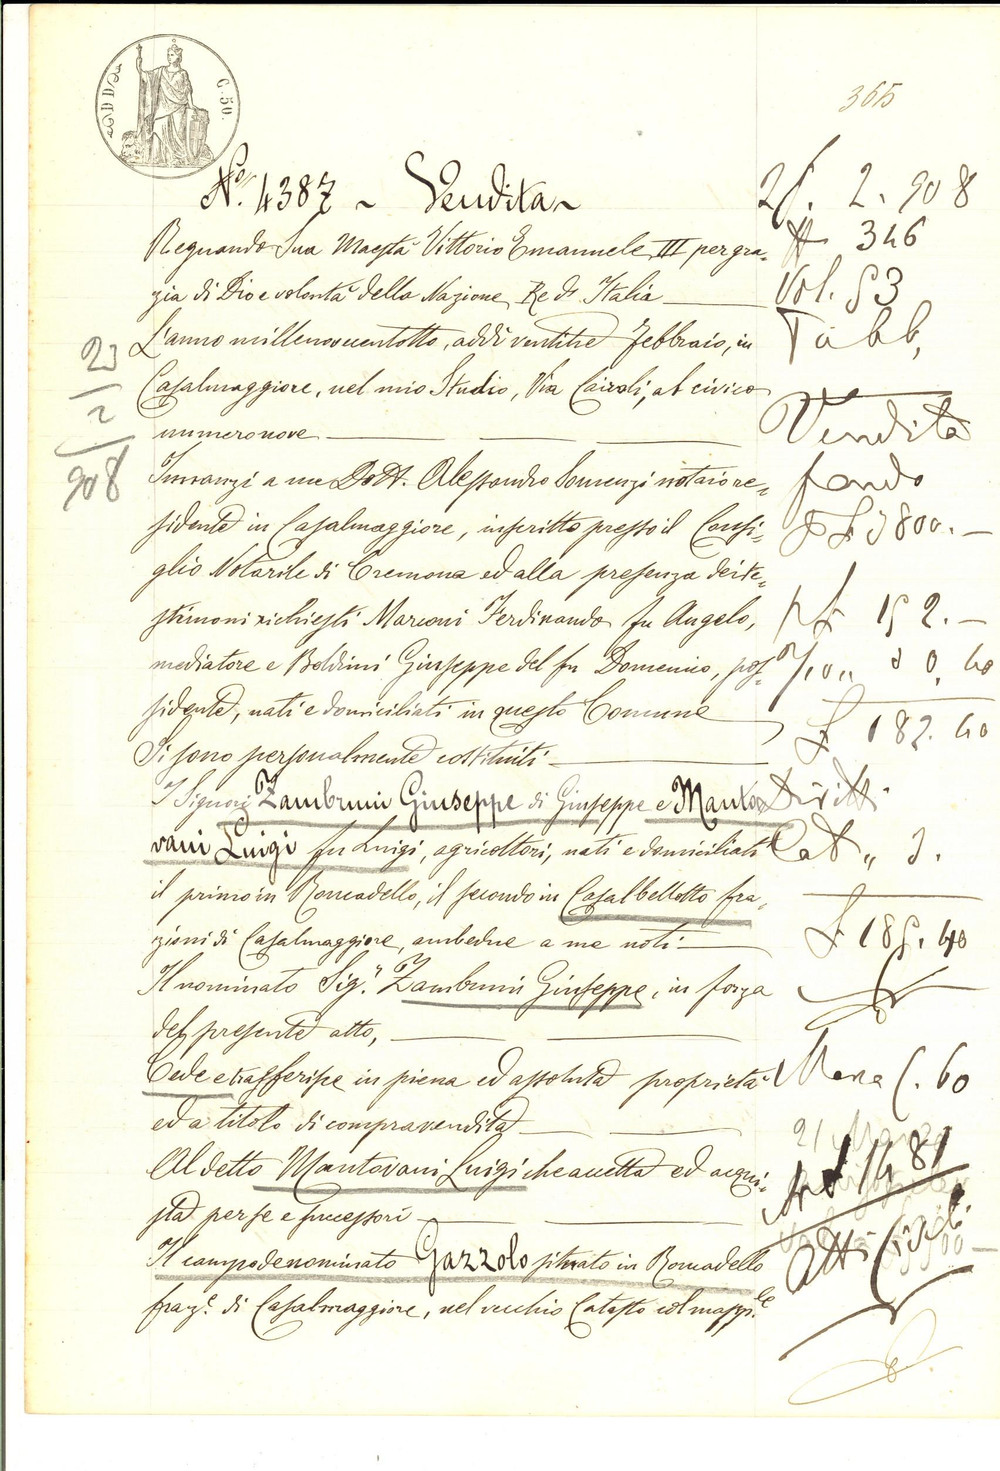 C. 50.
365
N.° 4387 ~ Vendita ~
Regnando Sua Maestà Vittorio Emanuele III per gra-
zia di Dio e volontà della Nazione Re d' Italia
L'anno millenovecentotto, addì ventitre Febbraio, in
Casalmaggiore, nel mio Studio, Via Cairoli, al civico
numero nove
Innanzi a me Dott. Alessandro Somenzi notaio re-
sidente in Casalmaggiore, inscritto presso il Consi-
glio Notarile di Cremona ed alla presenza dei te-
stimoni richiesti Marconi Ferdinando fu Angelo,
mediatore e Boldrini Giuseppe del fu Domenico, pos-
sidente, nati e domiciliati in questo Comune
Si sono personalmente costituiti
I Signori Zambruni Giuseppe di Giuseppe e Manto-
vani Luigi fu Luigi, agricoltori, nati e domiciliati
il primo in Roncadello, il secondo in Casalbellotto fra-
zioni di Casalmaggiore, ambedue a me noti
Il nominato Sig.r Zambruni Giuseppe, in forza
del presente atto,
Cede e trasferisce in piena ed assoluta proprietà
ed a titolo di compravendita
Al detto Mantovani Luigi che accetta ed acqui-
sta per se e successori
Il campo denominato Gazzolo situato in Roncadello
fraz.e di Casalmaggiore, nel vecchio Catasto col mapp.le
23
2
908
2. 908
N 346
Vol. 53
Tabb,
Vendita
fondo
£ 3800.—
£ 152.—
30,40
£ 182.40
Diritti
Cat „ 3.
£ 185.40
Mora C. 60
Art 1481
Atti Civili